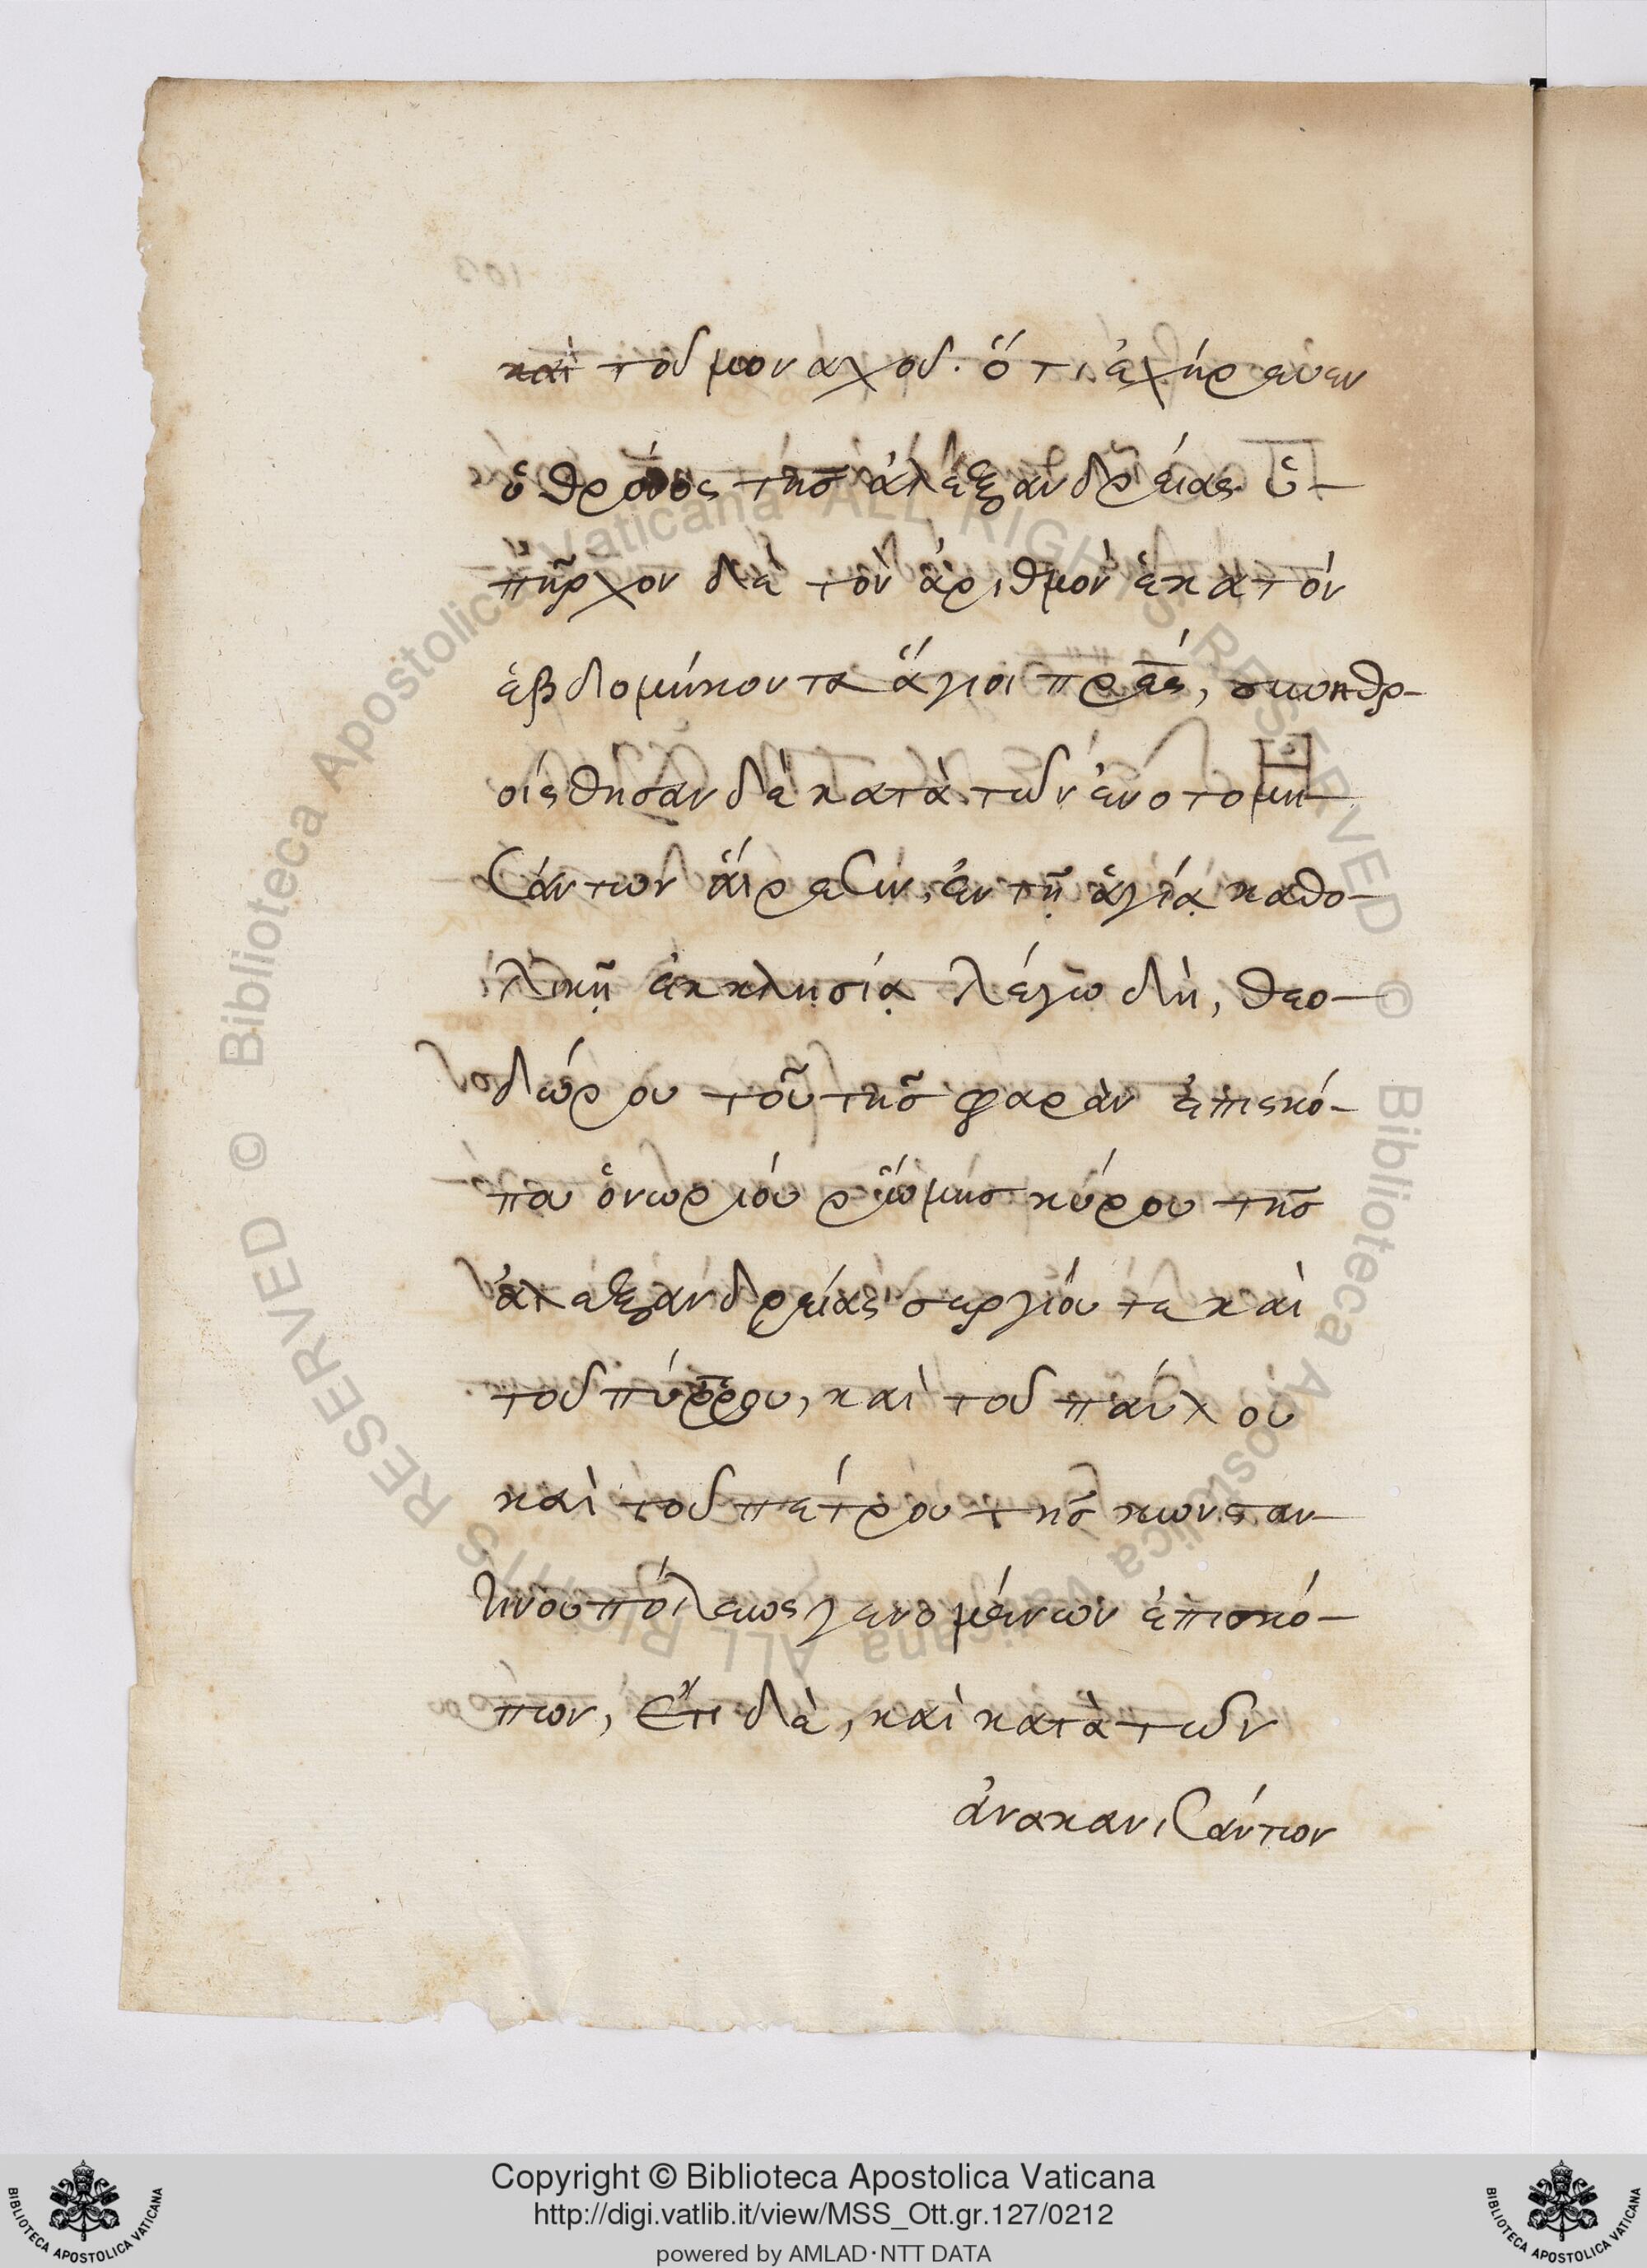 καὶ τοῦ μοναχοῦ. ὅτι ἐχήρευεν
ὁ θρόνος τῆσ ἀλεξανδρείας. ὑ-
πῆρχον δὲ τὸν ἀριθμὸν ἑκατὸν
ἑβδομήκοντα ἅγιοι πρες,
οίσθησαν δὲ κατὰ τῶν ἐνοτομη-
σάντων αἵρεσιν, ἐν τῆ ἁγία καθο-
λικῆ ἐκκλησία λέγω δὴ, θεο-
δώρου τοῦ τῆσ φαρὰν ἐπισκό-
που ὁνωρίου ῥώμησ κύρου τῆσ
ἀλεξανδρείας σεργίου τε καὶ
τοῦ πύρρου, καὶ τοῦ παύλου
καὶ τοῦ πέτρου τῆσ κωνσταν-
τινουπόλεως γενομένων ἐπισκό-
πων, ἔτι δὲ, καὶ κατὰ τῶν
ἀνακανισάντων
Copyright © Biblioteca Apostolica Vaticana
http://digi.vatlib.it/view/MSS_Ott.gr.127/0212
powered by AMLAD·NTT DATA
BIBLIOTECA APOSTOLICA VATICANA
BIBLIOTECA APOSTOLICA VATICANA
© Biblioteca Apostolica Vaticana ALL RIGHTS RESERVED
© Biblioteca Apostolica Vaticana ALL RIGHTS RESERVED